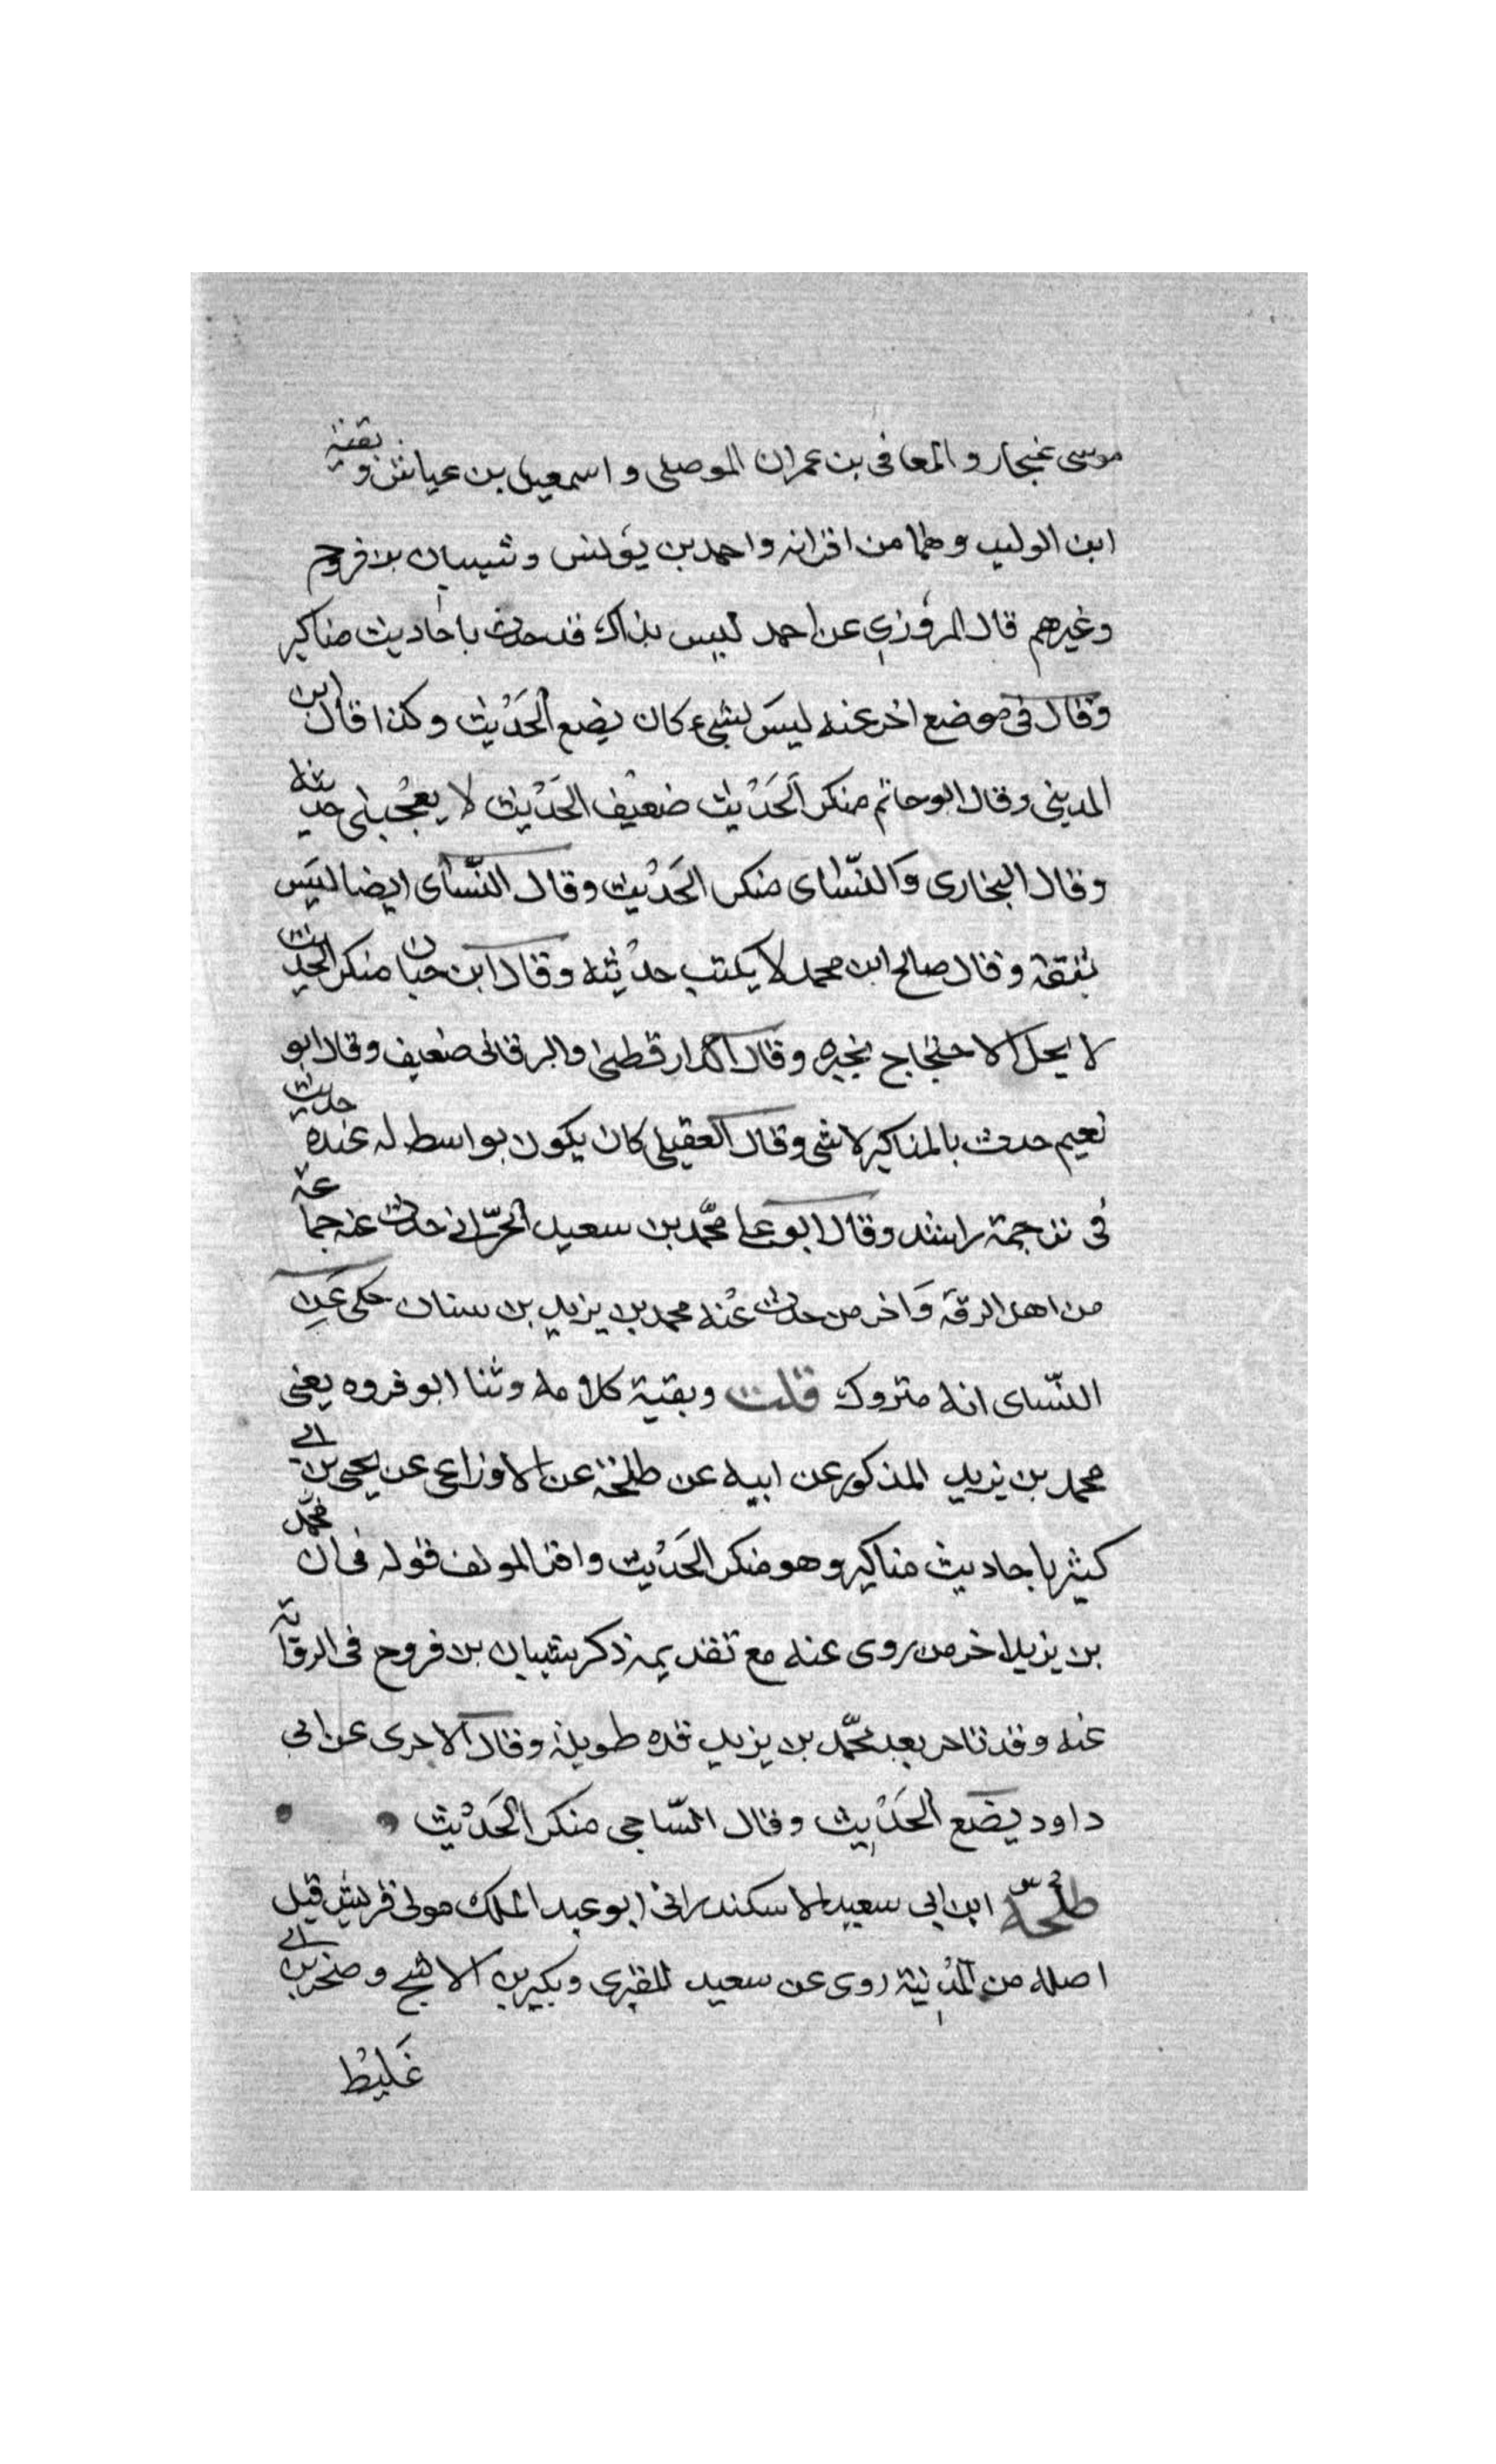 موسى غنجار والمعافى بن عمران الموصلى واسمعيل بن عياش وبقية
ابن الوليد وهما من اقرانه واحمد بن يونس وشيبان بن فروح
وغيرهم قال المروزي عن احمد ليس بذاك قد حدث باحاديث مناكير
وقال فى موضع اخر عنه ليس بشيء كان يضع الحديث وكذا قال ابن
المدينى وقال ابو حاتم منكر الحديث ضعيف الحديث لا يعجبنى حديثه
وقال البخارى والنساى منكر الحديث وقال النساى ايضا ليس
بثقة وقال صالح ابن محمد لا يكتب حديثه وقال ابن حبان منكر الحديث
لا يحل الاحتجاج بخبره وقال الدارقطنى والبرقانى ضعيف وقال ابو
نعيم حدث بالمناكير لا شى وقال العقيلى كان يكون بواسط له عنده حديث
فى ترجمة راشد وقال ابو على محمد بن سعيد الحرانى حدث عنه جماعة
من اهل الرقة واخر من حدث عنه محمد بن يزيد بن سنان حكى عن
النساى انه متروك قلت وبقية كلامه وثنا ابو فروه يعنى
محمد بن يزيد المذكور عن ابيه عن طلحة عن الاوزاعى عن يحيى بن ابى
كثير باحاديث مناكير وهو منكر الحديث واقر المولف قوله فى ان محمد
بن يزيد اخر من روى عنه مع تقديمه ذكر شيبان بن فروح فى الرواة
عنه وقد تاخر بعد محمد بن يزيد مده طويلة وقال الاجرى عن ابى
داود يضع الحديث وقال الساجى منكر الحديث
طلحة ابن ابى سعيد الاسكندرانى ابو عبد الملك مولى قريش قيل
اصله من المدينة روى عن سعيد المقبرى وبكير بن الاشج وصخر بن ابى
غليظ